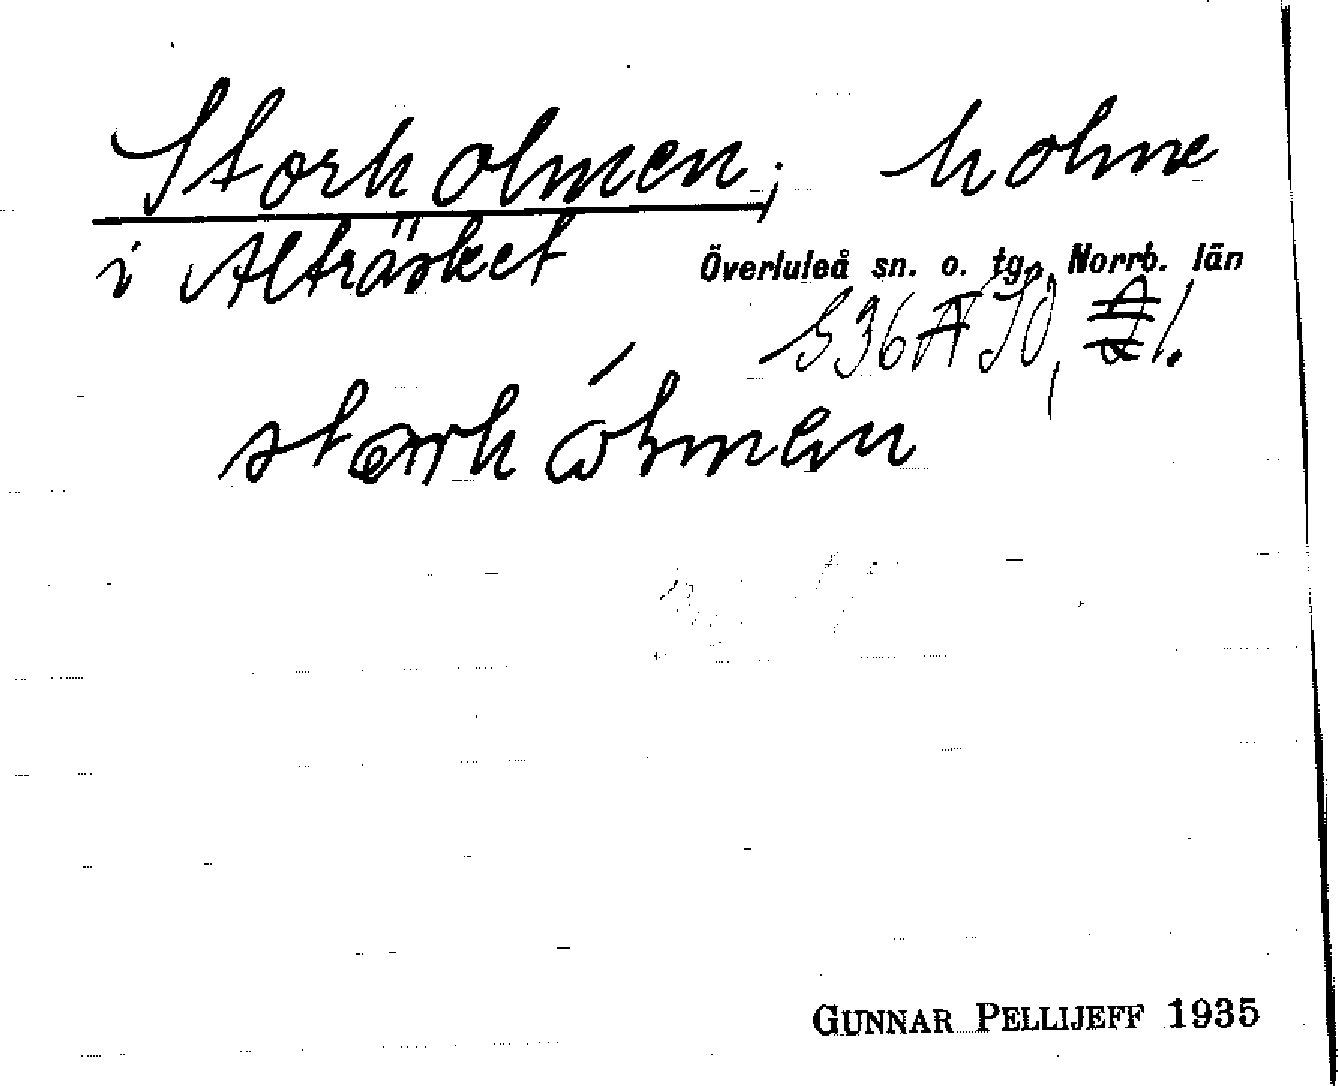 Storholmen, holme
i Alträsket
Överluleå sn. o. tg., Norrb. län
S36
GUNNAR PELLIJEFF 1935